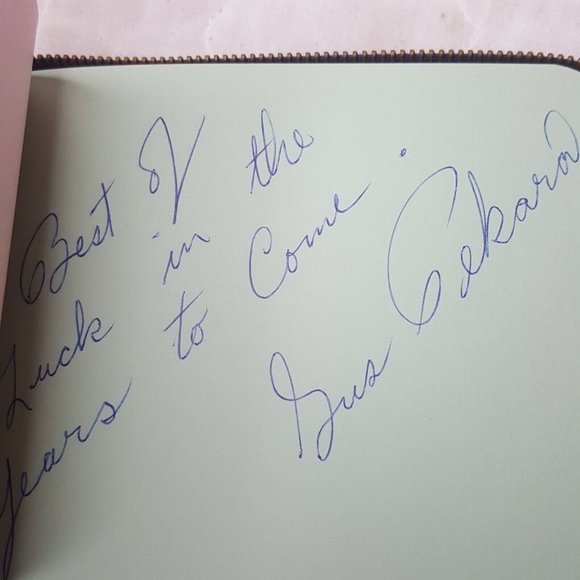 Best of
Luck in the
Years to Come.
Gus